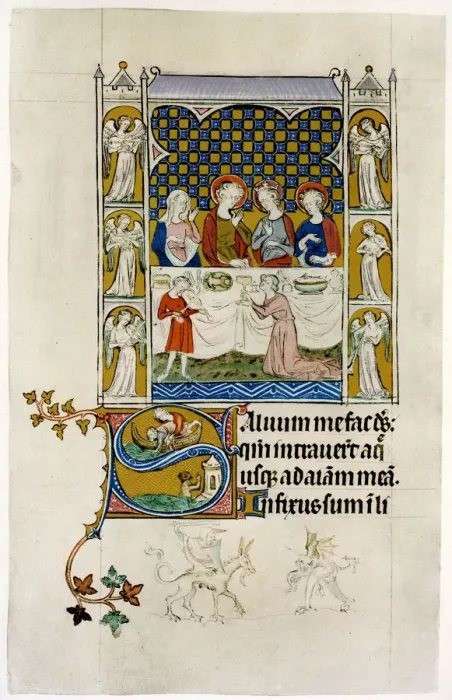 Saluum me fac ds̄:
qm̄ intrauer̄t aq̄
usq; ad aīam meā.
Infixus sum ī li